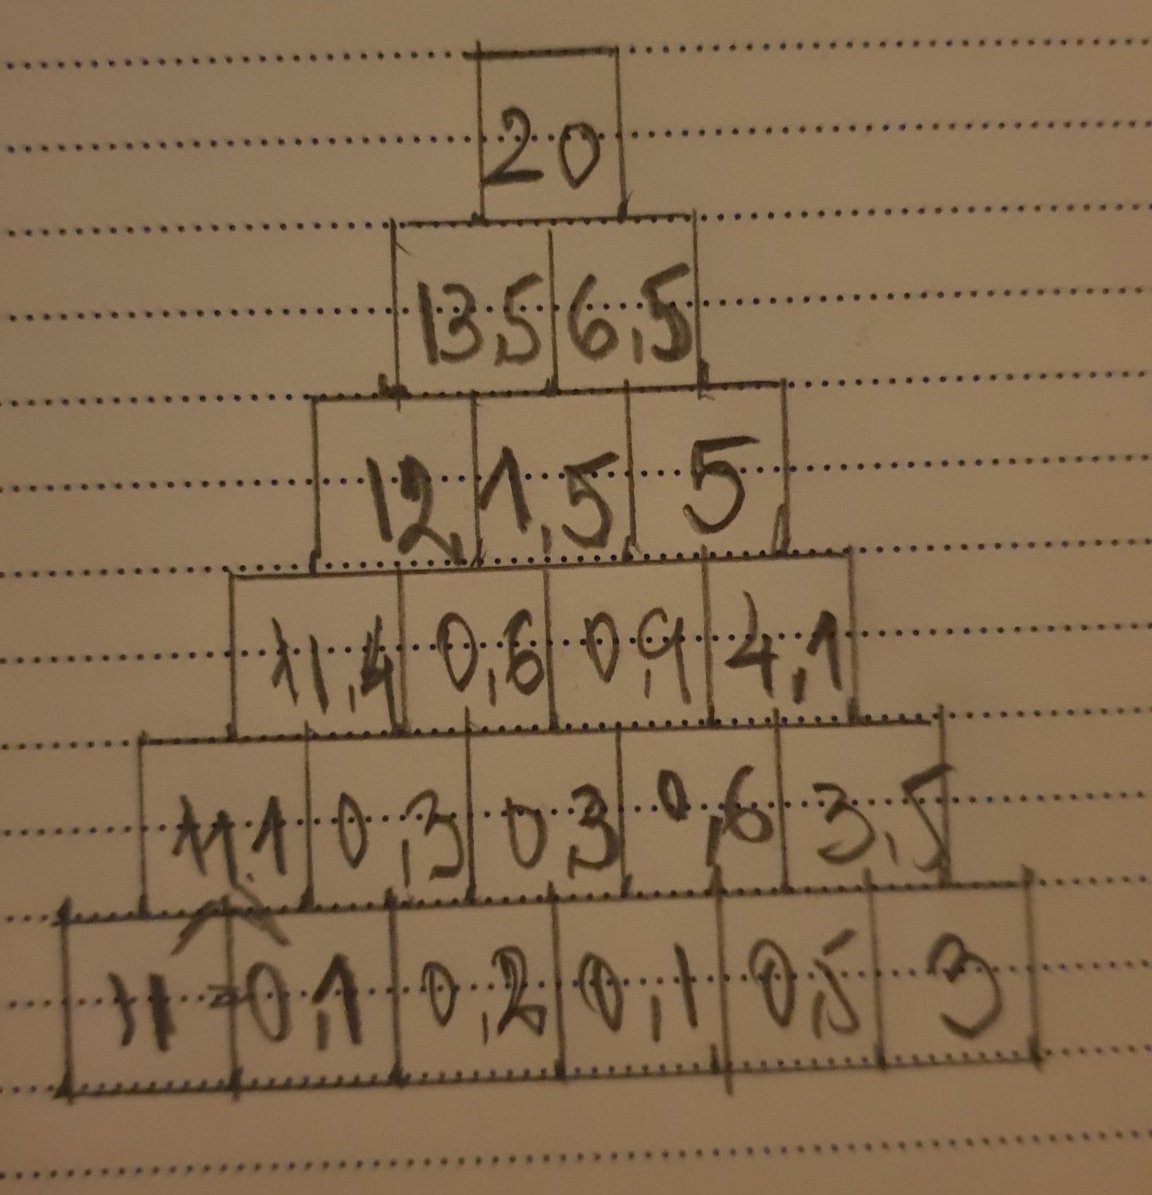 20
13,5 6,5
12, 1,5 5
11,4 0,6 0,9 4,1
11,1 0,3 0,3 0,6 3,5
11 0,1 0,2 0,1 0,5 3